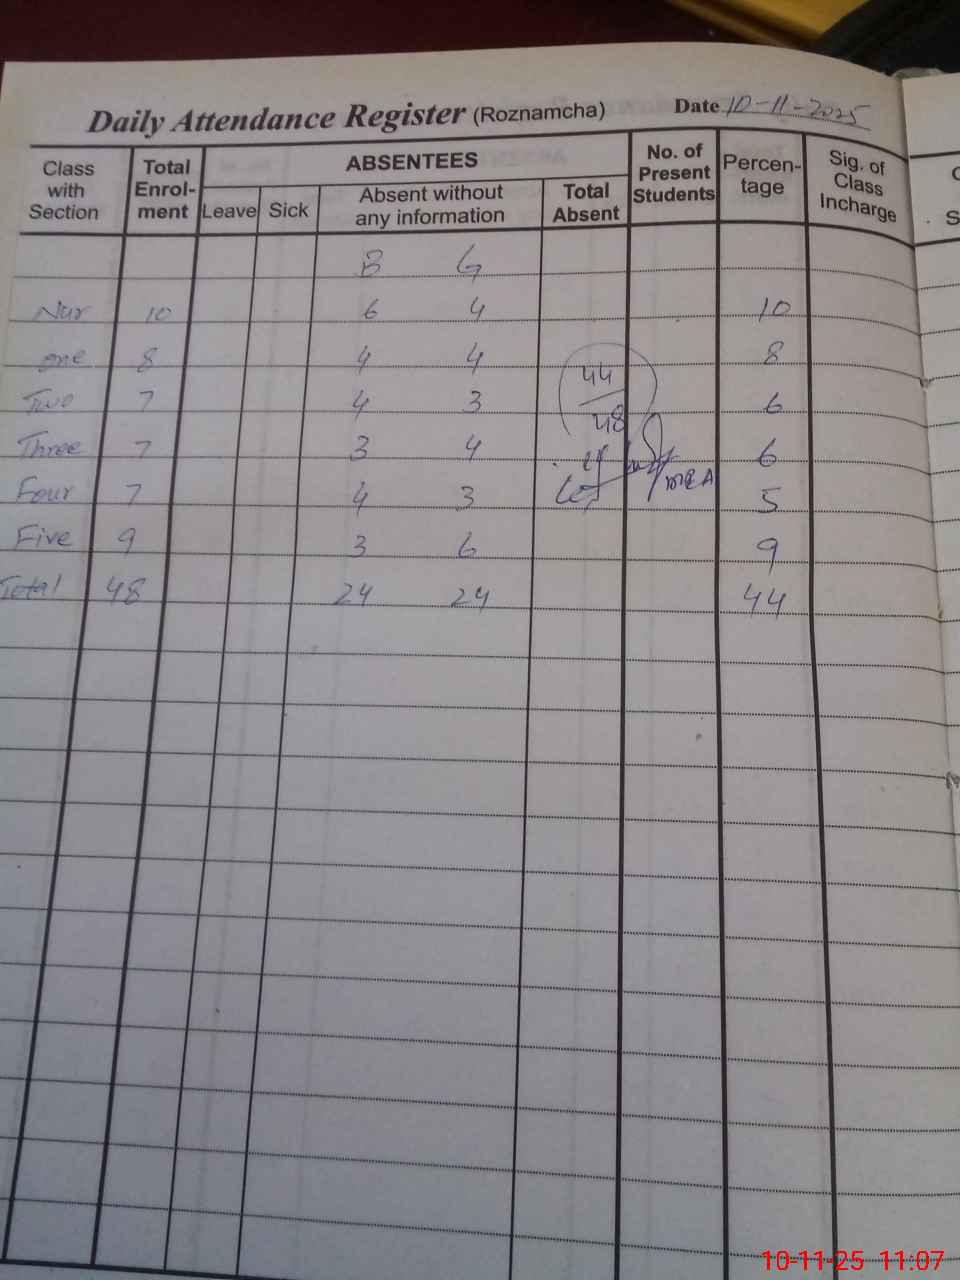 Daily Attendance Register (Roznamcha) Date 10-11-2025
Class with Section | Total Enrol-ment | ABSENTEES | No. of Present Students | Percen-tage | Sig. of Class Incharge
Leave | Sick | Absent without any information | Total Absent
B G
Nur 10 6 4 10
one 8 4 4 8
Two 7 4 3 6
44
48
Three 7 3 4 6
Four 7 4 3 5
Five 9 3 6 9
Total 48 24 24 44
10-11-25 11:07